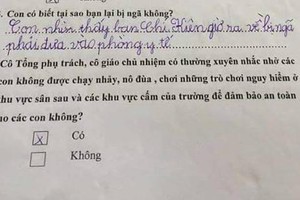 . Con có biết tại sao bạn lại bị ngã không?
Con nhìn thấy bạn Chí Hiên giờ ra về bị ngã
phải đưa vào phòng y tế
Cô Tổng phụ trách, cô giáo chủ nhiệm có thường xuyên nhắc nhở các
con không được chạy nhảy, nô đùa , chơi những trò chơi nguy hiểm ở
khu vực sân sau và các khu vực cấm của trường để đảm bảo an toàn
ho các con không?
X Có
Không